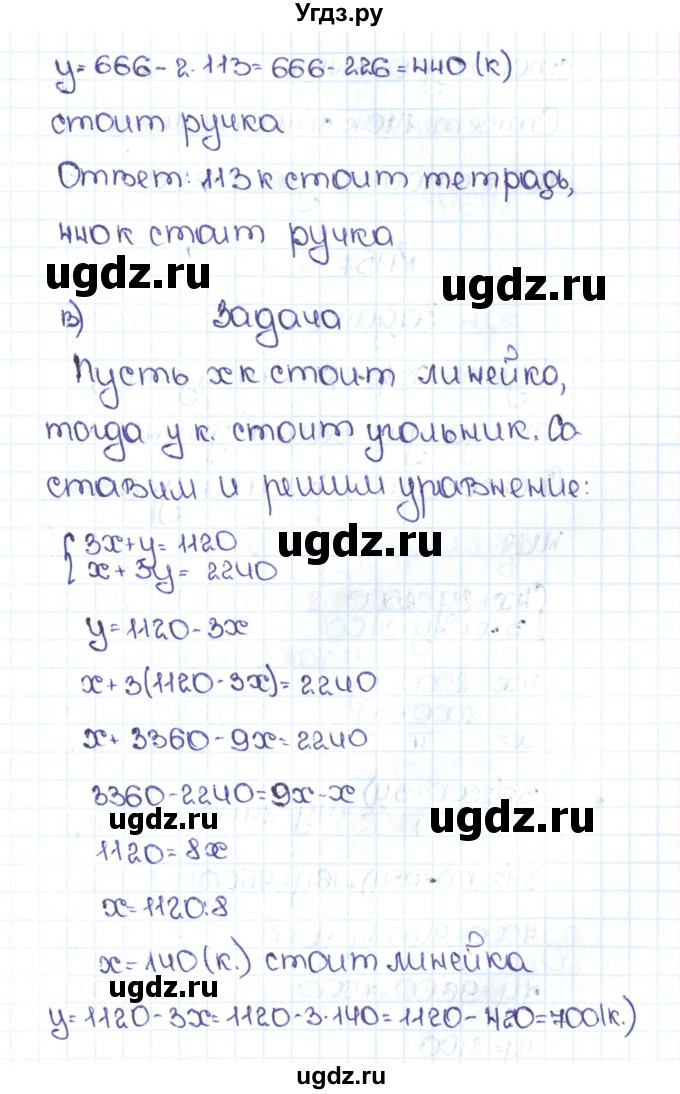 Угдз.ру
y = 666 - 2 · 113 = 666 - 226 = 440 (к)
стоит ручка
Ответ: 113 к стоит тетрадь,
440 к стоит ручка
ugdz.ru ugdz.ru
в) Задача
Пусть x к стоит линейко,
тогда у к. стоит угольник. Со
ставим и решим уравнение:
{ 3x + y = 1120
x + 3y = 2240
ugdz.ru
y = 1120 - 3x
x + 3(1120 - 3x) = 2240
x + 3360 - 9x = 2240
3360 - 2240 = 9x - x
ugdz.ru ugdz.ru
1120 = 8x
x = 1120 : 8
x = 140 (к.) стоит линейка
ugdz.ru
y = 1120 - 3x = 1120 - 3 · 140 = 1120 - 420 = 700 (к.)
ugdz.ru